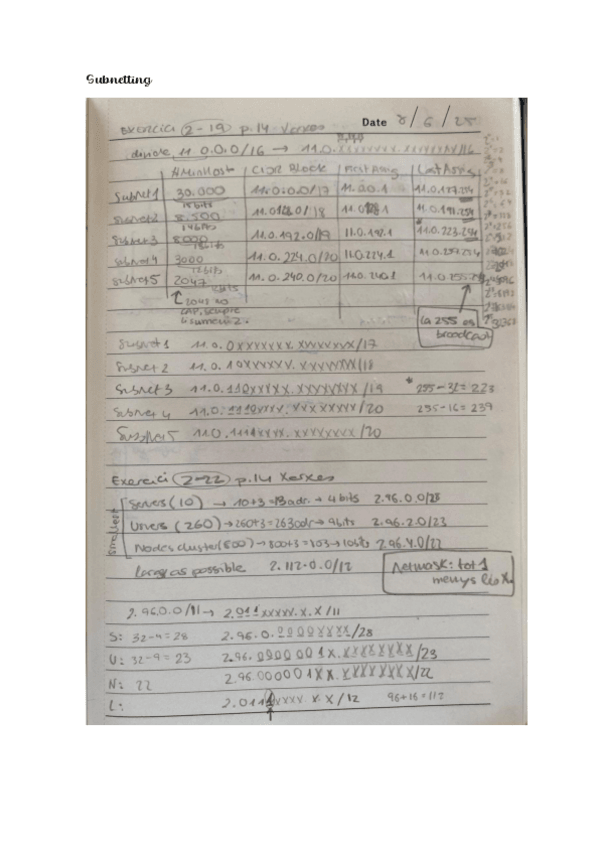 Subnetting
Exercici 2-19 p.14 Xerxes Date 8/6/25
divide 11.0.0.0/16 → 11.0.xxxxxxxx.xxxxxxxx/16
#MinHosts CIDR Block First Assig. Last Assig.
Subnet1 30.000 11.0.0.0/17 11.0.0.1 11.0.127.254
15bits
Subnet2 8.500 11.0.128.0/18 11.0.128.1 11.0.191.254
14bits
Subnet3 8000 11.0.192.0/19 11.0.192.1 11.0.223.254
13bits
Subnet4 3000 11.0.224.0/20 11.0.224.1 11.0.239.254
12bits
Subnet5 2047 11.0.240.0/20 11.0.240.1
2048 no
cap, sempre
li sumem 2.
la 255 es
broadcast
Subnet 1 11.0.0xxxxxxx.xxxxxxxx/17
Subnet 2 11.0.10xxxxxx.xxxxxxxx/18
Subnet 3 11.0.110xxxxx.xxxxxxxx/19 * 255-32=223
Subnet 4 11.0.1110xxxx.xxxxxxxx/20 255-16=239
Subnet 5 11.0.1111xxxx.xxxxxxxx/20
Exercici 2-22 p.14 Xerxes
smallest
Servers (10) → 10+3=13adr. → 4bits 2.96.0.0/28
Users (260) → 260+3=263adr → 9bits 2.96.2.0/23
Nodes cluster(800) → 800+3=803 → 10bits 2.96.4.0/22
Large as possible 2.112.0.0/12
Network: tot 1
menys les X.
2.96.0.0/11 → 2.011xxxxx.x.x/11
S: 32-4=28 2.96.0.0000xxxx/28
U: 32-9=23 2.96.0000001x.xxxxxxxx/23
N: 22 2.96.000001xx.xxxxxxxx/22
L: 2.0111xxxx.x.x/12 96+16=112